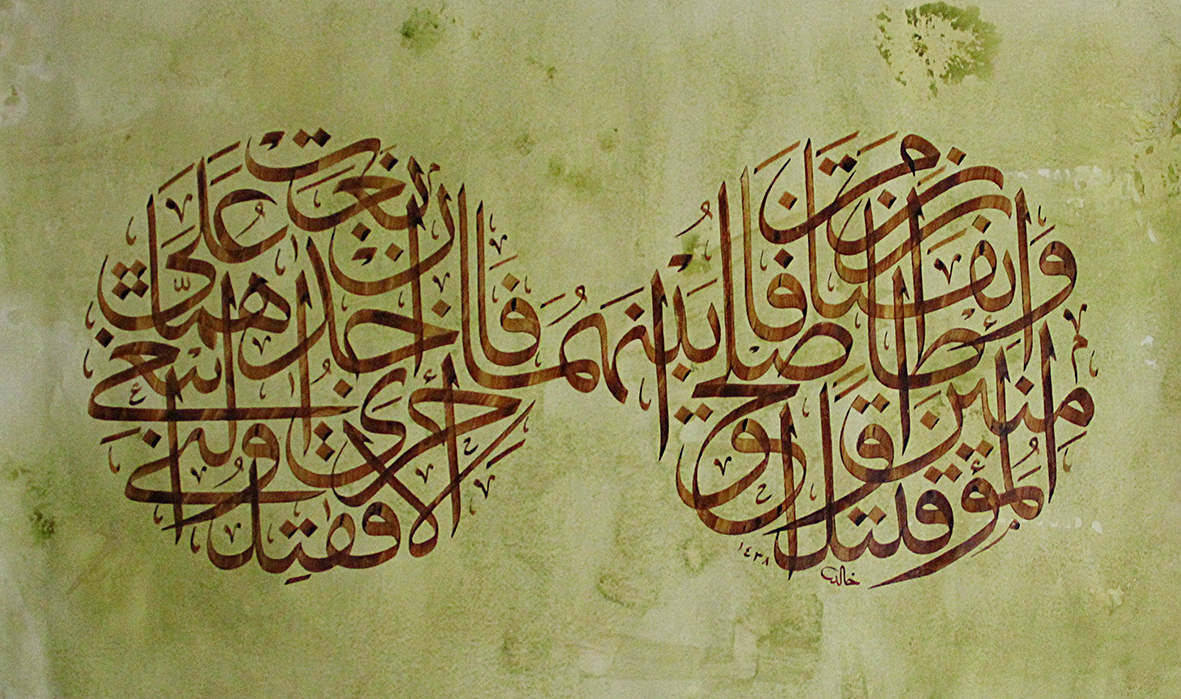 وإن طائفتان من المؤمنين اقتتلوا فأصلحوا
بينهما
فإن بغت إحدىهما على الأخرى فقتلوا التي تبغي
خالد
١٤٣٨